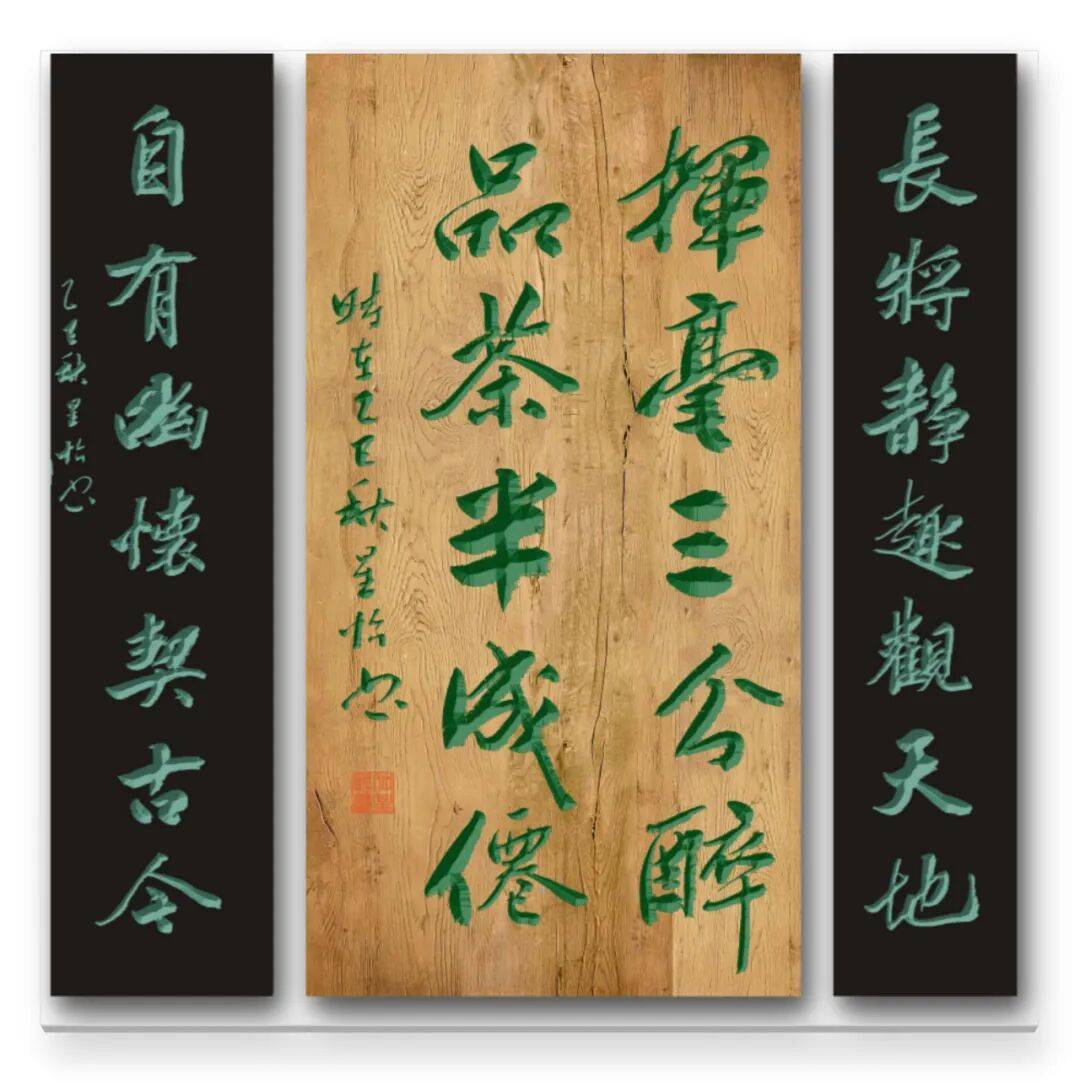 長將靜趣觀天地
揮毫三分醉
品茶半成僊
時在乙巳秋星怡书
自有幽懷契古今
乙巳秋星怡书